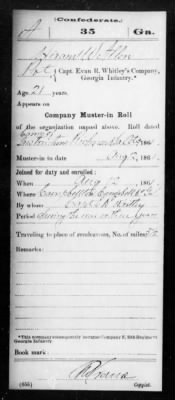 (Confederate.)
A 35 Ga.
Hiram W. Allen
Pvt., Capt. Evan R. Whitley's Company,
Georgia Infantry.*
Age 21 years.
Appears on
Company Muster-in Roll
of the organization named above. Roll dated
Camp
Instruction 186
Muster-in to date 186
Joined for duty and enrolled:
When Aug 12, 186
Where Campbellton Campbell Co Ga
By whom Capt E R Whitley
Period during the war or three years
Traveling to place of rendezvous, No. of miles
Remarks:
*This company subsequently became Company F, 35th Regiment
Georgia Infantry.
Book mark:
(655) Copyist.